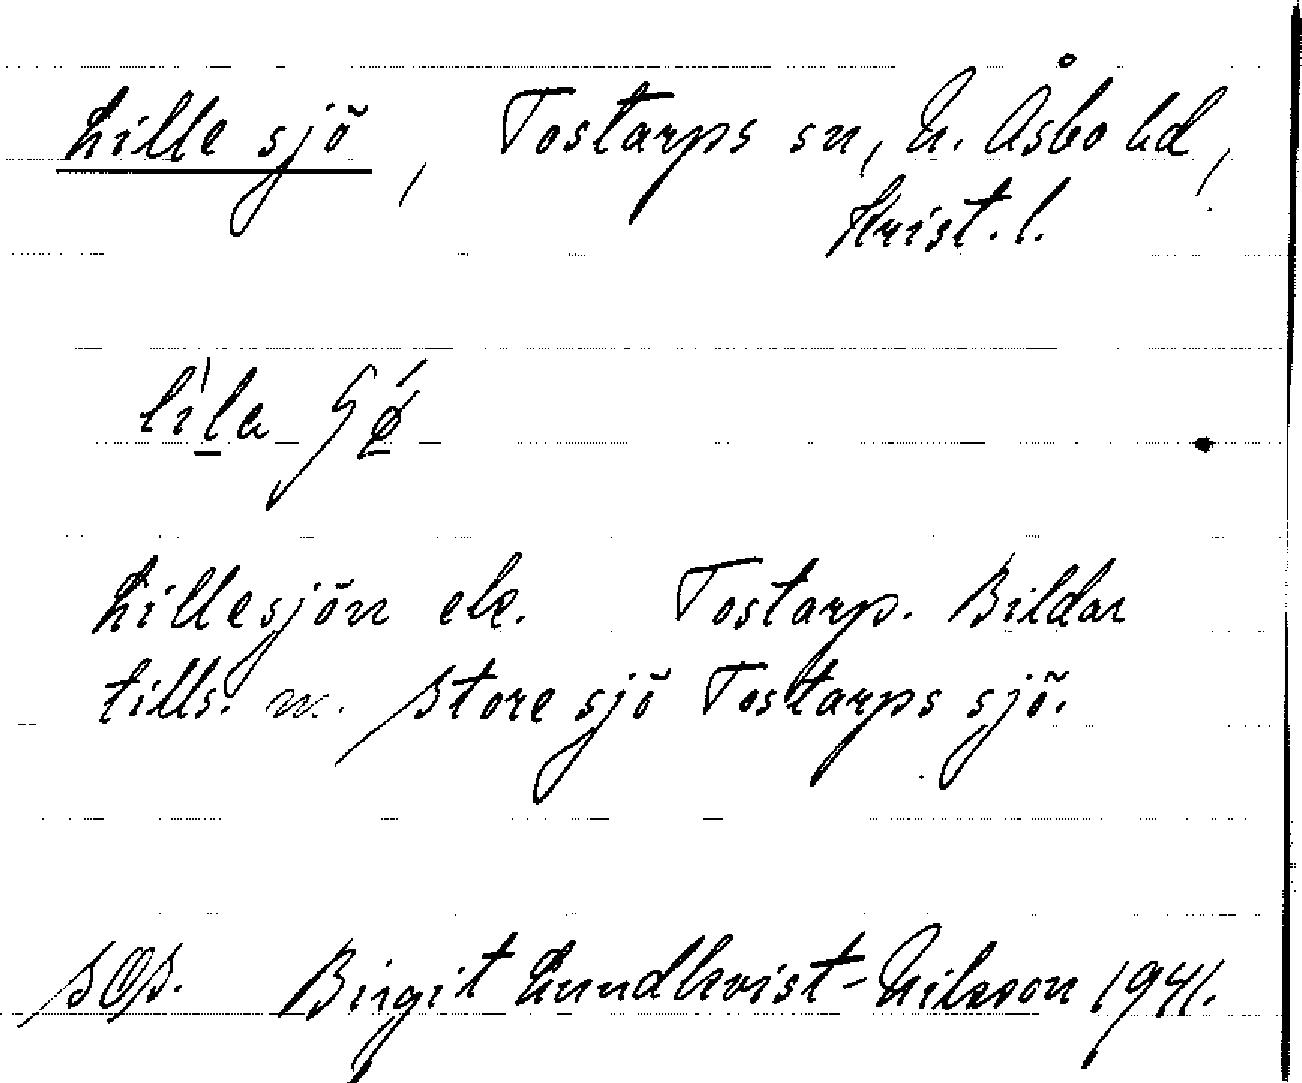 Lille sjö, Tostarps sn, N. Åsbo hd,
Krist. l.
Lillesjön ek. Tostarp. Bildar
tills. m. Store sjö Tostarps sjö.
SOS. Birgit Lundkvist-Nilsson 1941.